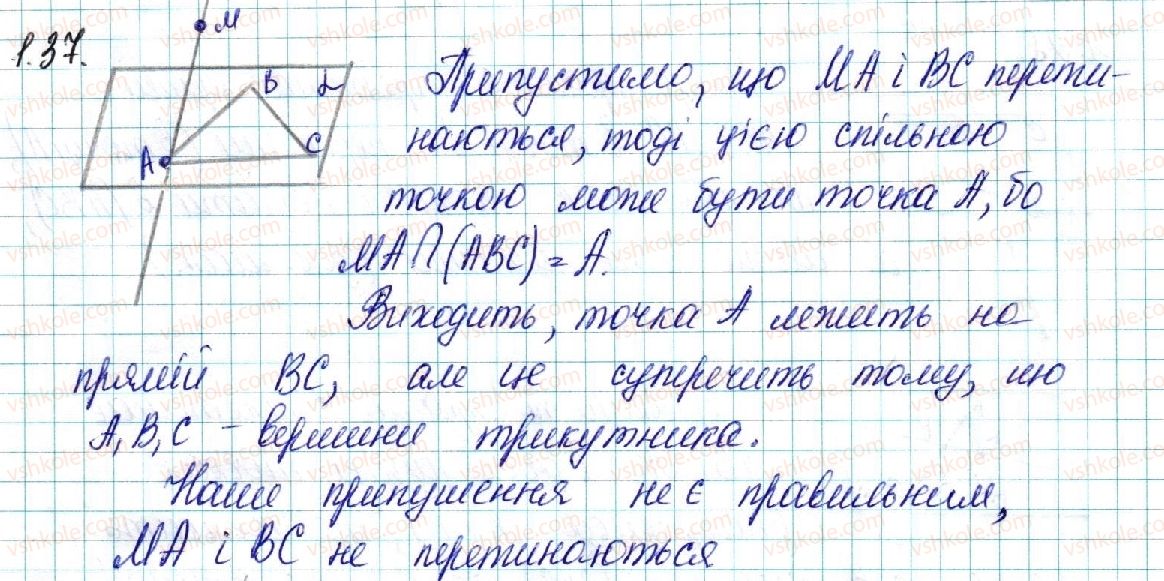 1.37.
M
B
α
A
C
Припустимо, що MA і BC перети-
наються, тоді цією спільною
точкою може бути точка A, бо
MA∩(ABC) = A.
Виходить, точка A лежить на
прямій BC, але це суперечить тому, що
A, B, C – вершини трикутника.
Наше припущення не є правильним,
MA і BC не перетинаються